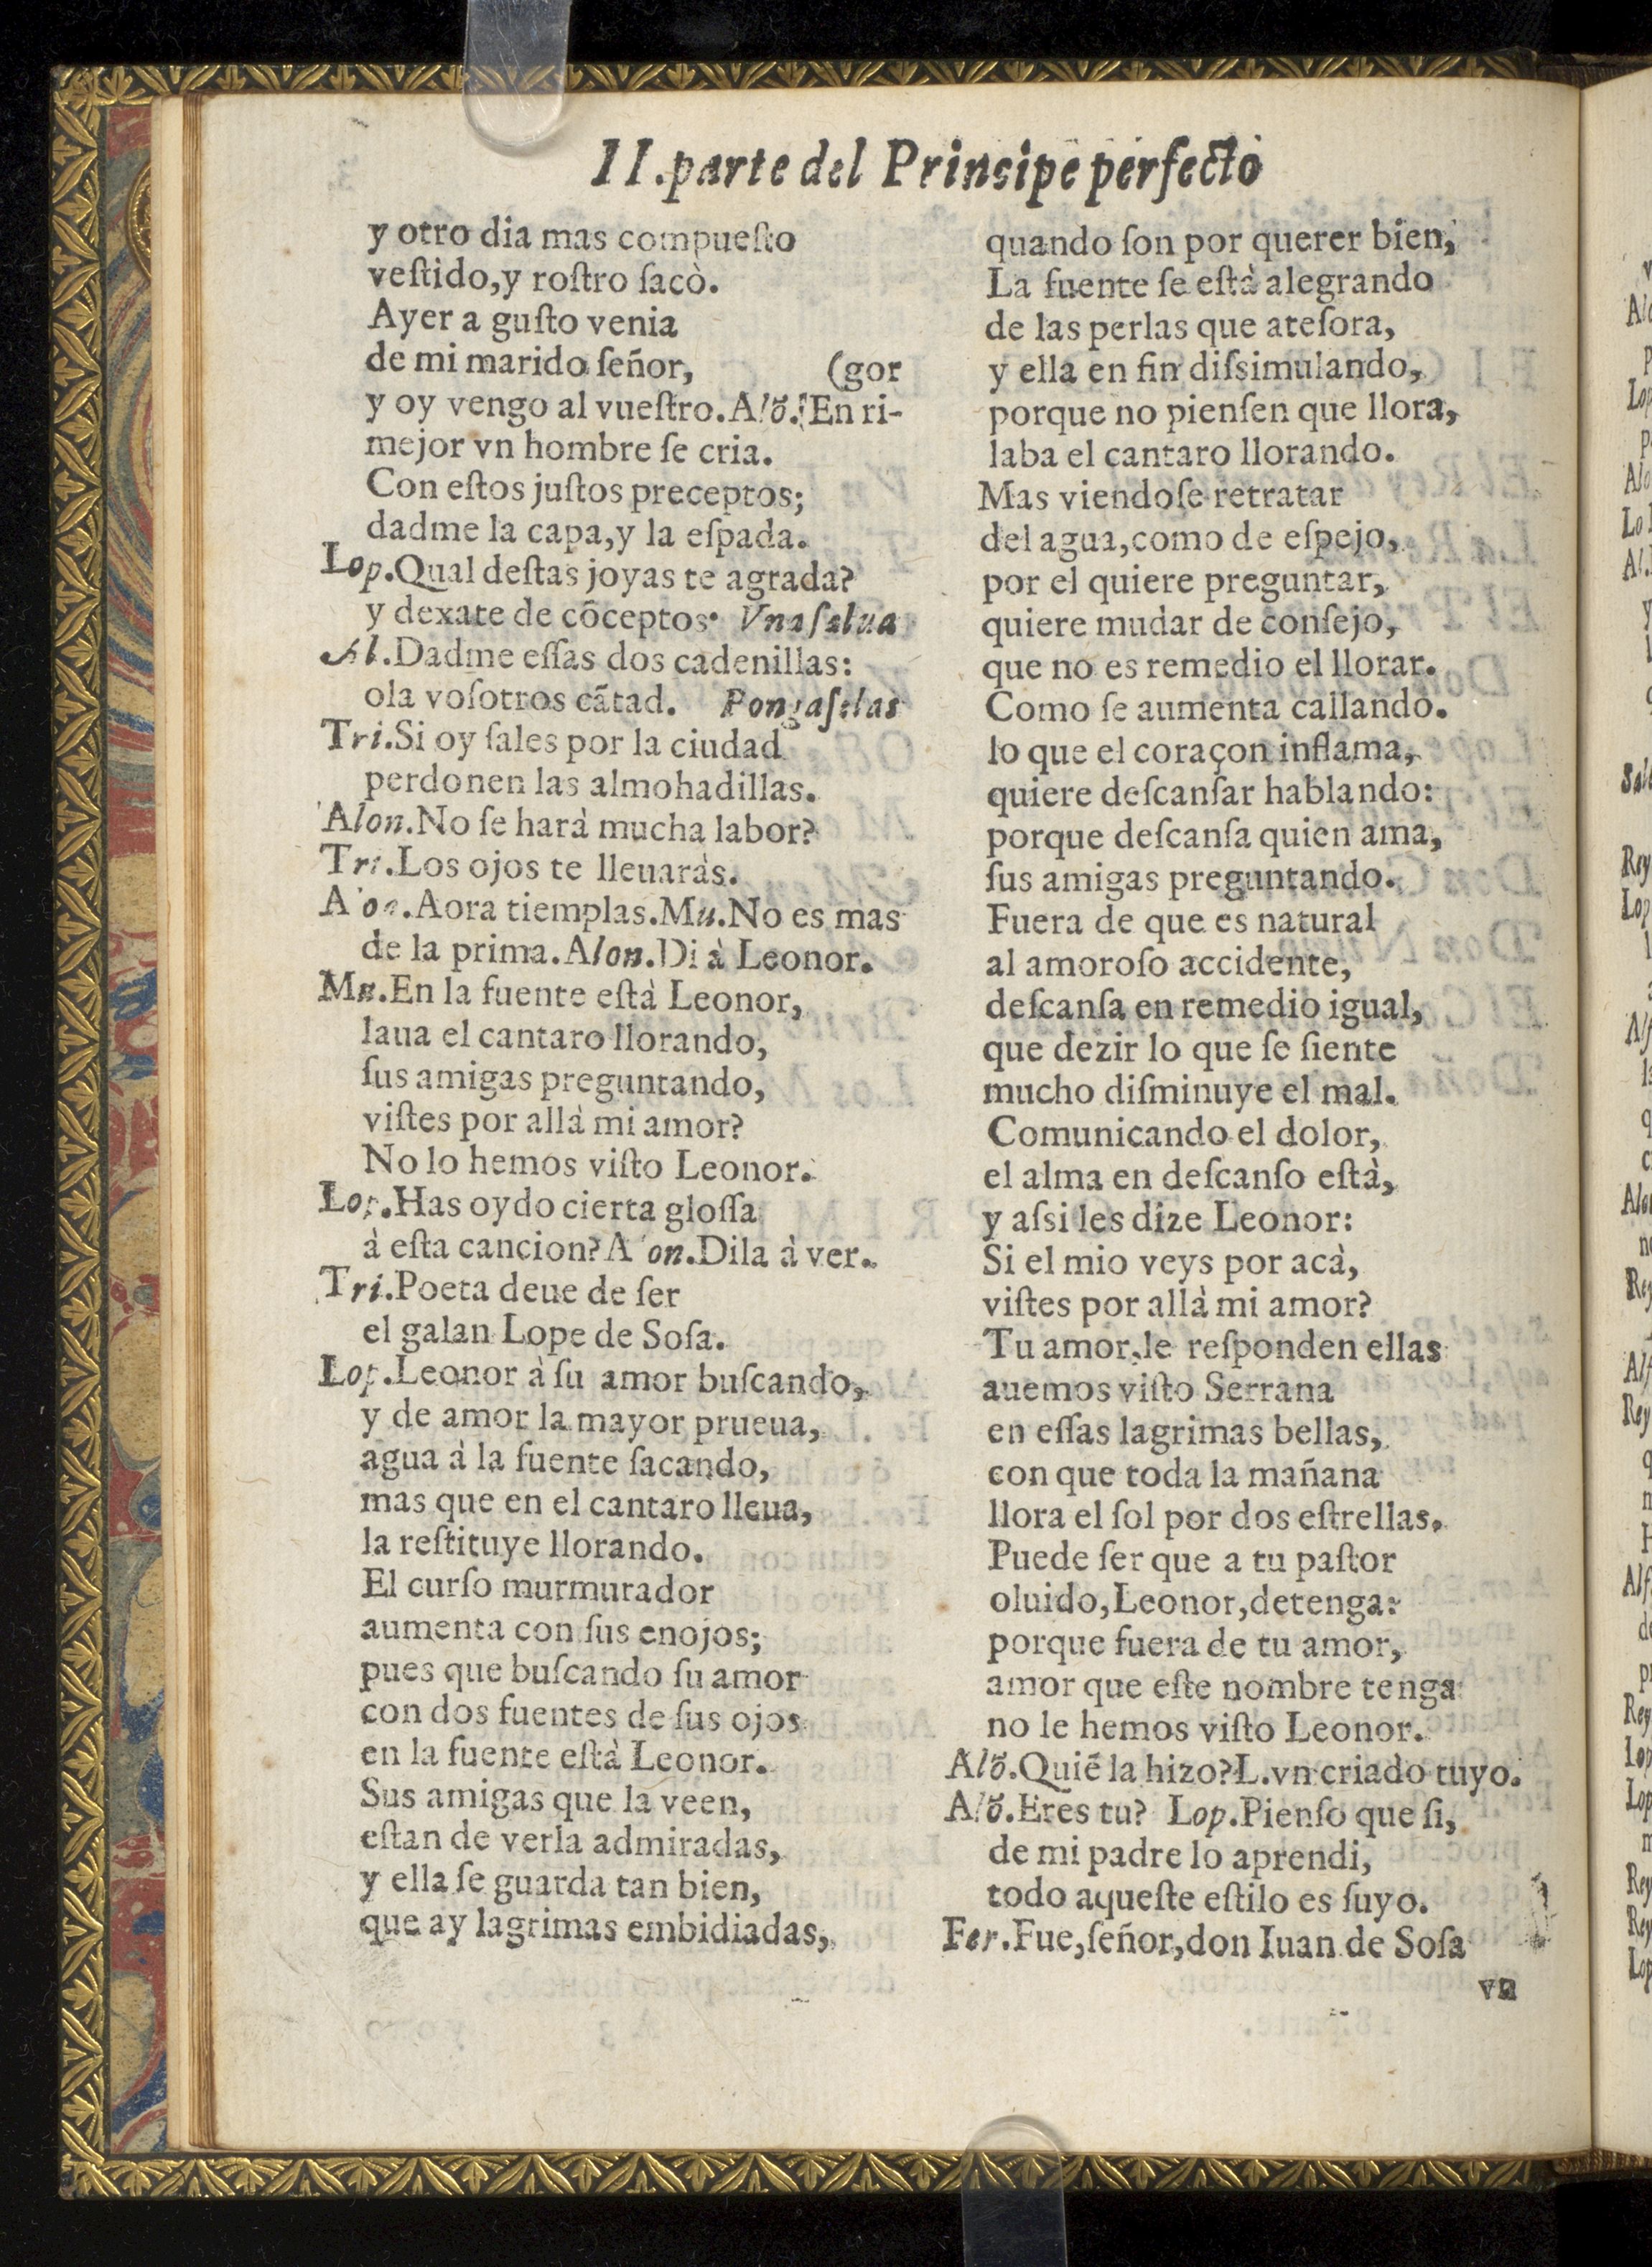 II.parte del Principe perfecto
y otro dia mas compueſto
veſtido,y roſtro ſacò.
Ayer a guſto venia
de mi marido ſeñor, (gor
y oy vengo al vueſtro.Alõ.En ri-
mejor vn hombre ſe cria.
Con eſtos juſtos preceptos;
dadme la capa,y la eſpada.
Lop.Qual deſtas joyas te agrada?
y dexate de cõceptos. Vna ſalua
Al.Dadme eſſas dos cadenillas:
ola voſotros cãtad. Pongaſelas
Tri.Si oy ſales por la ciudad
perdonen las almohadillas.
Alon.No ſe harà mucha labor?
Tri.Los ojos te lleuaràs.
Aora tiemplas.Mu.No es mas
de la prima.Alon.Di à Leonor.
Mu.En la fuente eſtà Leonor,
laua el cantaro llorando,
ſus amigas preguntando,
viſtes por allà mi amor?
No lo hemos viſto Leonor.
Lop.Has oydo cierta gloſſa
à eſta cancion?Alon.Dila à ver.
Tri.Poeta deue de ſer
el galan Lope de Soſa.
Lop.Leonor à ſu amor buſcando,
y de amor la mayor prueua,
agua à la fuente ſacando,
mas que en el cantaro lleua,
la reſtituye llorando.
El curſo murmurador
aumenta con ſus enojos;
pues que buſcando ſu amor
con dos fuentes de ſus ojos
en la fuente eſtà Leonor.
Sus amigas que la veen,
eſtan de verla admiradas,
y ella ſe guarda tan bien,
que ay lagrimas embidiadas,
quando ſon por querer bien,
La fuente ſe eſtà alegrando
de las perlas que ateſora,
y ella en fin diſsimulando,
porque no pienſen que llora,
laba el cantaro llorando.
Mas viendoſe retratar
del agua,como de eſpejo,
por el quiere preguntar,
quiere mudar de conſejo,
que no es remedio el llorar.
Como ſe aumenta callando.
lo que el coraçon inflama,
quiere deſcanſar hablando:
porque deſcanſa quien ama,
ſus amigas preguntando.
Fuera de que es natural
al amoroſo accidente,
deſcanſa en remedio igual,
que dezir lo que ſe ſiente
mucho diſminuye el mal.
Comunicando el dolor,
el alma en deſcanſo eſtà,
y aſsi les dize Leonor:
Si el mio veys por acà,
viſtes por allà mi amor?
Tu amor,le reſponden ellas
auemos viſto Serrana
en eſſas lagrimas bellas,
con que toda la mañana
llora el ſol por dos eſtrellas.
Puede ſer que a tu paſtor
oluido,Leonor,detenga:
porque fuera de tu amor,
amor que eſte nombre tenga
no le hemos viſto Leonor.
Alõ.Quiẽ la hizo?L.vn criado tuyo.
Alõ.Eres tu? Lop.Pienſo que ſi,
de mi padre lo aprendi,
todo aqueſte eſtilo es ſuyo.
Fer.Fue,ſeñor,don Iuan de Soſa
vn